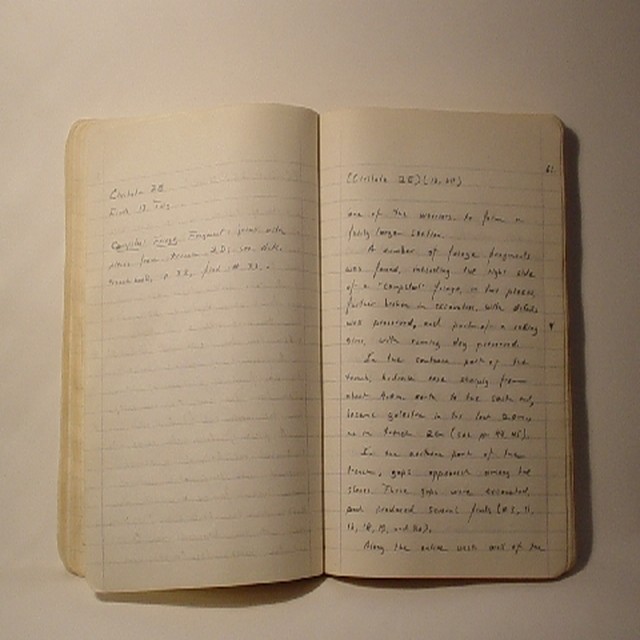 Civitate 2E
Find 17. Fig
Complete frieze fragment, joins with
other from trench 2D; see
trenchbook, p. 32, find # 31.
61
(Civitate 2E) (17, 24)
one of the warriors to form a
fairly large section.
A number of frieze fragments
was found, including the right side
of a "complete" frieze, in two pieces,
further broken in excavation, with
was preserved, and part of a raking
sima, with running dog preserved.
In the southern part of the
trench, bedrock rose sharply from
about from north to the south end,
became in the last 2.0 m
as in trench 2C (see pp. 44, 45).
In the northern part of the
trench, gaps appeared among the
stones. These gaps were excavated,
and produced several finds (# 5, 11,
16, 18, 19, and 20).
Along the entire west wall of the